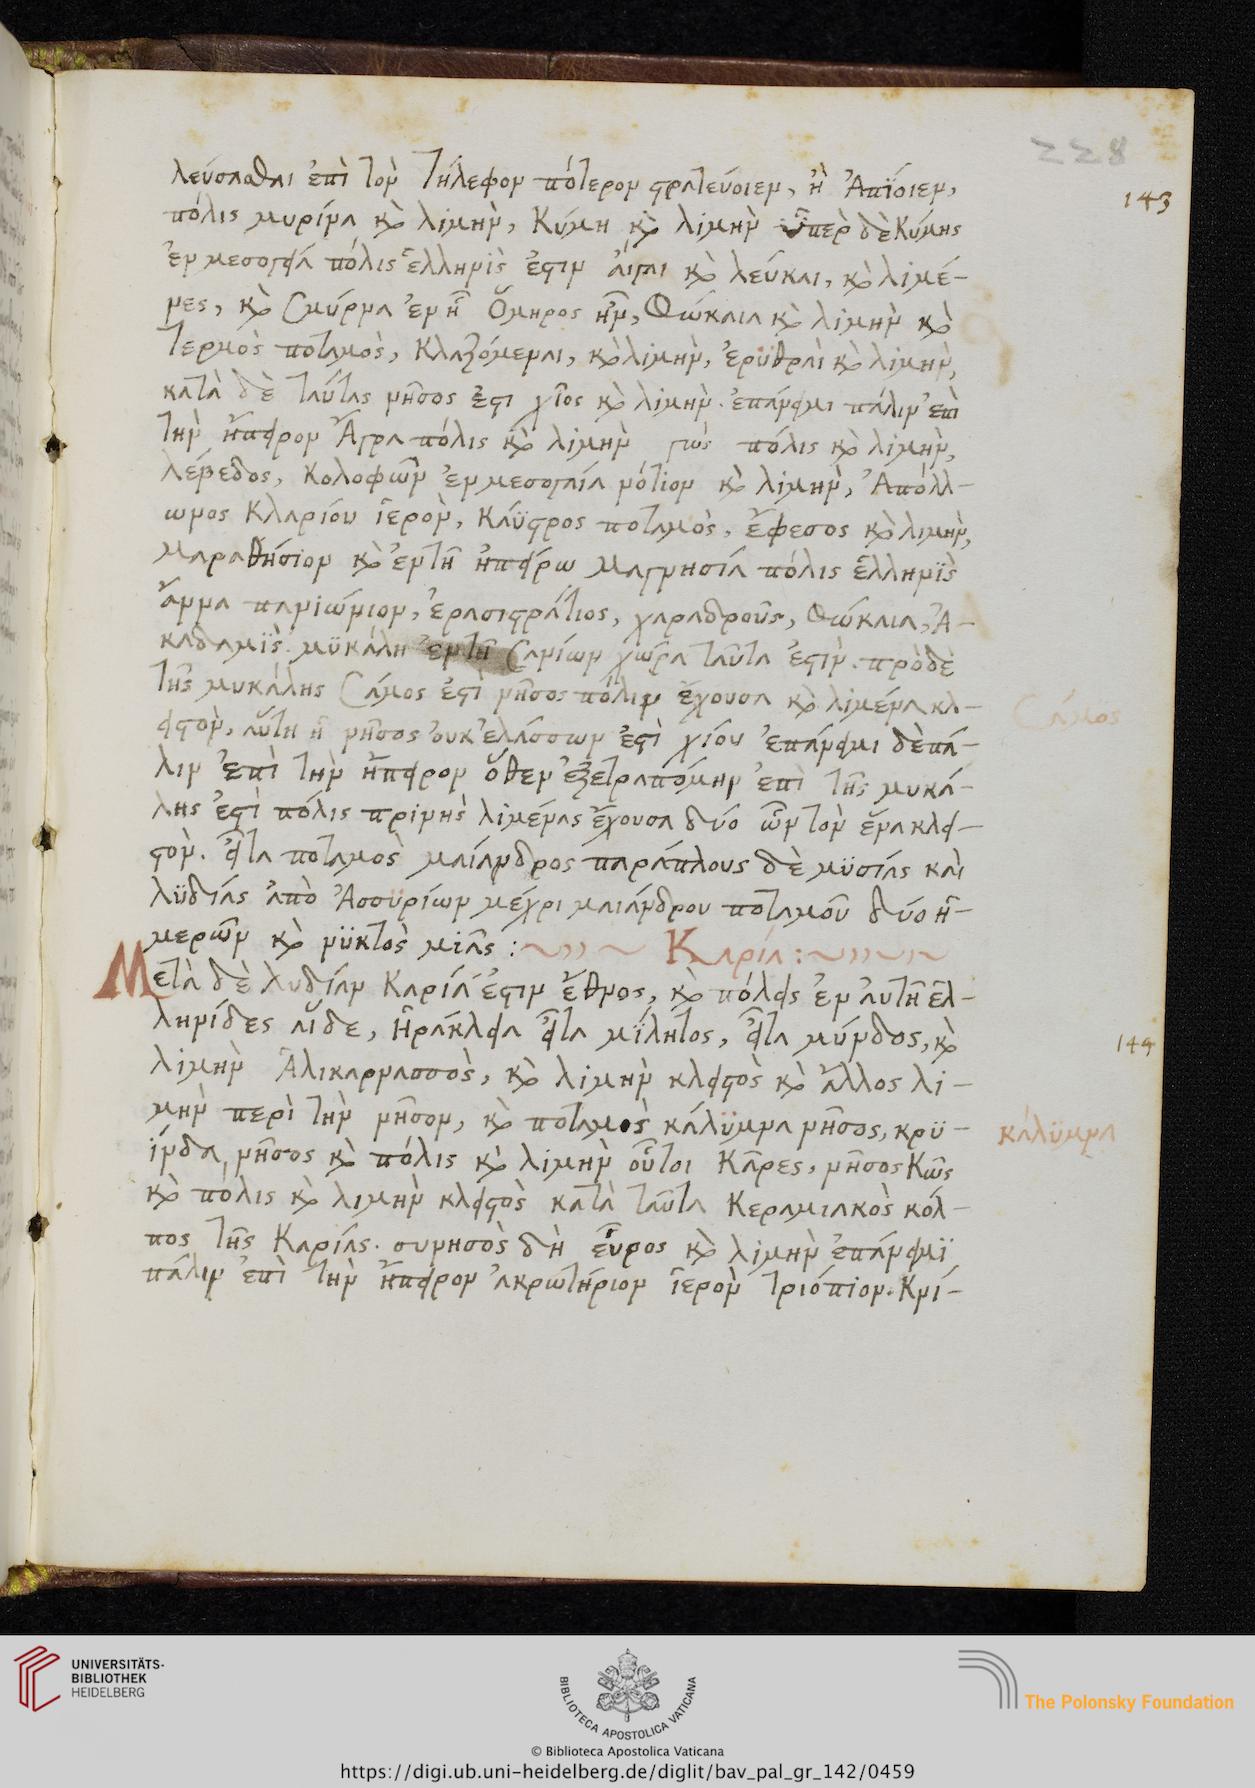 228
143
λεύσασθαι ἐπὶ τὸν Τήλεφον πότερον στρατεύοιεν, ἢ Ἀπίοιεν,
πόλις μυρίνα κὲ λιμὴν, Κύμη κὲ λιμὴν ὑπὲρ δὲ Κύμης
ἐν μεσογεία πόλις ἑλληνὶς ἐστιν ἀιγαι κὲ λεύκαι, κὲ λιμέ-
νες, κὲ Σμύρνα ἐν ἧ Ὅμηρος ἦν, Φώκαια κὲ λιμὴν κὲ
Ἑρμὸς ποταμὸς, Κλαζόμεναι, κὲ λιμὴν, ἐρϋθραὶ κὲ λιμὴν,
κατὰ δὲ ταύτας νῆσος ἐστι χῖος κὲ λιμὴν. ἐπάνειμι πάλιν ἐπὶ
τὴν ἤπειρον Ἄγρα πόλις κὲ λιμὴν γιὼς πόλις κὲ λιμὴν,
λέβεδος, κολοφῶν ἐν μεσογαία νότιον κὲ λιμὴν, Ἀπόλλ-
ωνος Κλαρίου ἱερὸν, Κάϋστρος ποταμὸς, ἔφεσος κὲ λιμὴν,
μαραθήσιον κὲ ἐν τῆ ἠπείρω μαγνησία πόλις ἑλληνϊς
ἄννα πανιώνιον, ἐρασιστράτιος, χαραδροῦς, Φώκαια, Ἀ-
καδαμϊς. μϋκάλη ἐν τῆ Σαμίων χώρα ταῦτα ἐστὶν. πρὸ δὲ
τῆς μυκάλης Σάμος ἐστὶ νῆσος πόλιν ἔχουσα κὲ λιμένα κλ-
ειστὸν, αὕτη ἡ νῆσος οὐκ ἐλάσσων ἐστὶ χίου ἐπάνειμι δὲ πά-
λιν ἐπὶ τὴν ἤπειρον ὅθεν ἐξετραπόμην ἐπὶ τῆς μυκά-
λης ἐστὶ πόλις πριήνὴς λιμένας ἔχουσα δύο ὧν τὸν ἕνα κλει-
στὸν. εἶτα ποταμὸς μαίανδρος παράπλους δὲ μϋσίας καὶ
λϋδίας ἀπὸ Ἀσσϋρίων μέχρι μαιάνδρου ποταμοῦ δύο ἡ-
μερῶν κὲ νϋκτὸς μιᾶς : Καρία :
Μετὰ δὲ λυδίαν Καρία ἐστιν ἔθνος, κὲ πόλεις ἐν αὐτῆ ἑλ-
ληνίδες αἵδε, Ἡράκλεια εἶτα μίλητος, εἶτα μύνδος, κὲ
λιμὴν Ἁλικαρνασσὸς, κὲ λιμὴν κλειστὸς κὲ ἄλλος λι-
μὴν περὶ τὴν νῆσον, κὲ ποταμὸς κάλϋμνα νῆσος, κρϋ-
ΐνδα, νῆσος κὲ πόλις κὲ λιμὴν οὗτοι Κᾶρες, νῆσος Κῶς
κὲ πόλις κὲ λιμὴν κλειστὸς κατὰ ταῦτα Κεραμιακὸς κόλ-
πος τῆς Καρίας. συνησὸς δὴ εὖρος κὲ λιμὴν ἐπάνειμϊ
πάλιν ἐπὶ τὴν ἤπειρον ἀκρωτήριον ἱερὸν τριόπιον. Κνί-
Σάμος
144
κάλϋμνα
UNIVERSITÄTS-
BIBLIOTHEK
HEIDELBERG
BIBLIOTECA APOSTOLICA VATICANA
The Polonsky Foundation
© Biblioteca Apostolica Vaticana
https://digi.ub.uni-heidelberg.de/diglit/bav_pal_gr_142/0459